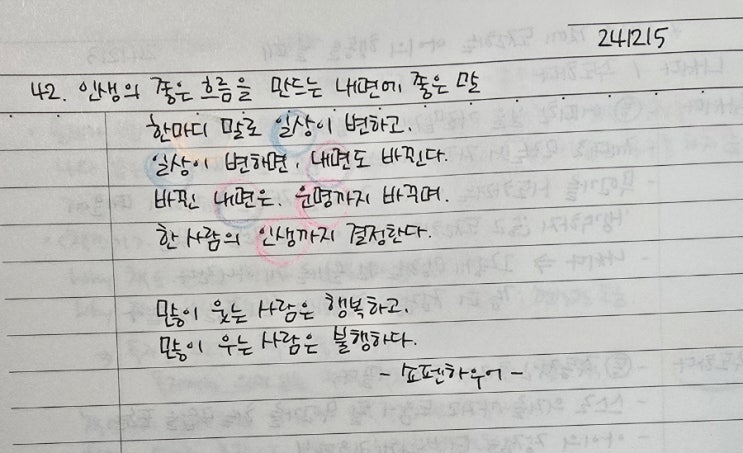 241215
42. 인생의 좋은 흐름을 만드는 내면에 좋은 말
한마디 말로 일상이 변하고,
일상이 변하면, 내면도 바뀐다.
바뀐 내면은, 운명까지 바꾸며,
한 사람의 인생까지 결정한다.
많이 웃는 사람은 행복하고,
많이 우는 사람은 불행하다.
- 쇼펜하우어 -